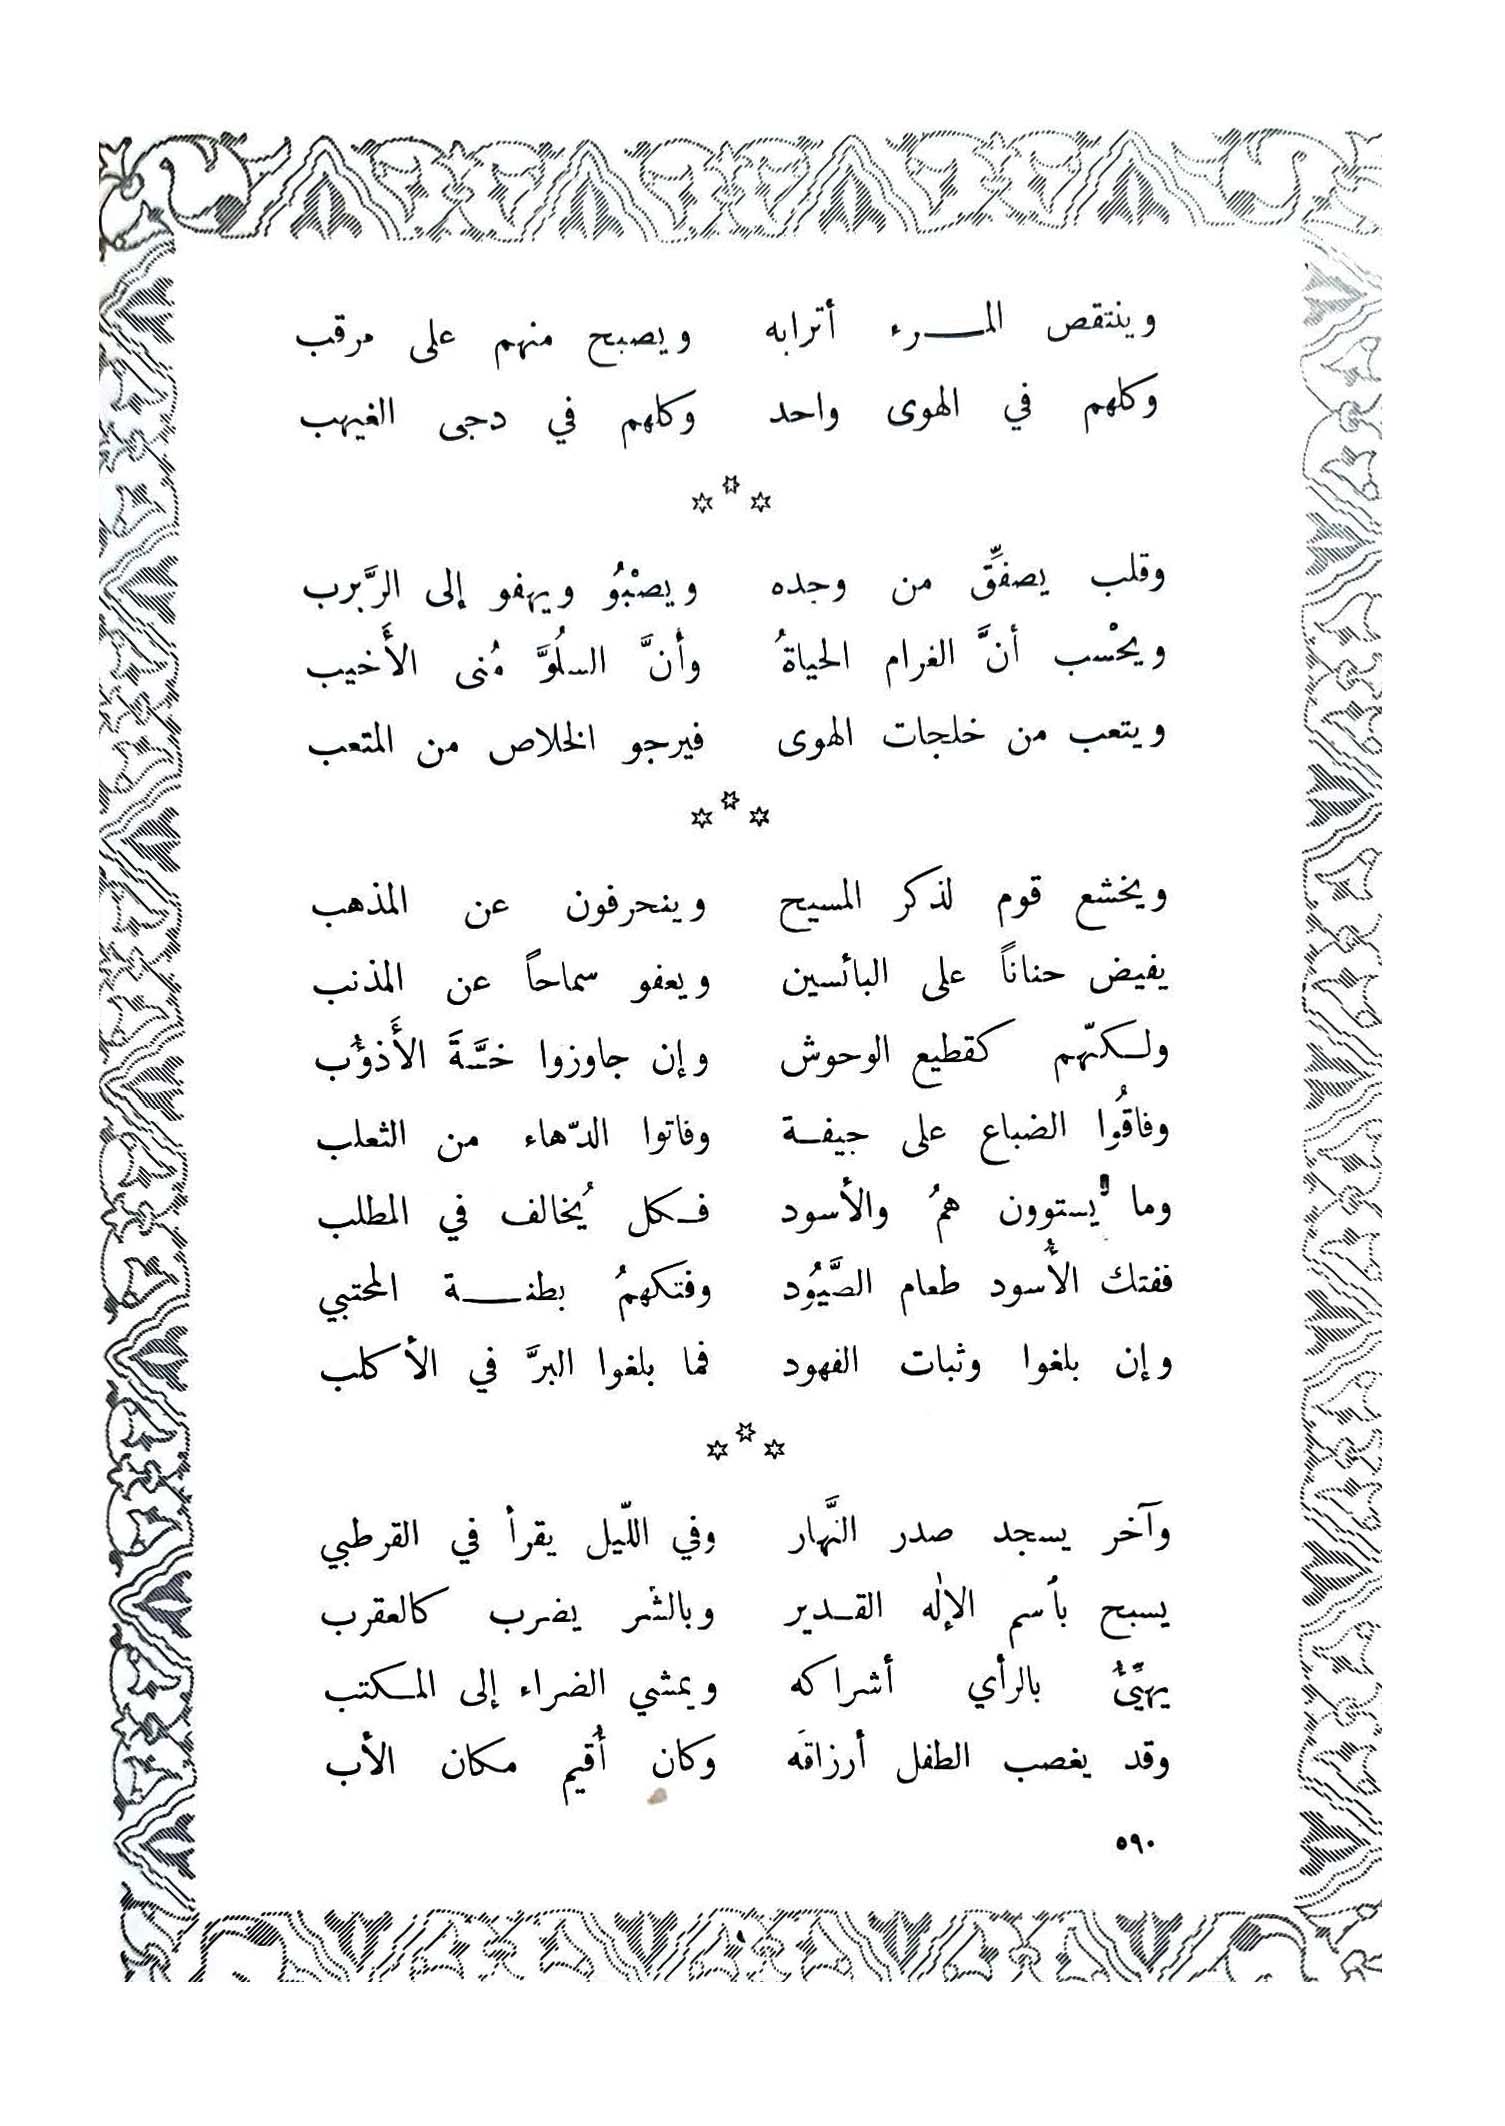 وينتقص المـــرء أترابه ويصبح منهم على مرقب
وكلهم في الهوى واحد وكلهم في دجى الغيهب
***
وقلب يصفِّق من وجده ويصْبُو ويهفو إلى الرَّبرب
ويحْسب أنَّ الغرام الحياةُ وأنَّ السلُوَّ مُنى الأَخيب
ويتعب من خلجات الهوى فيرجو الخلاص من المتعب
***
ويخشع قوم لذكر المسيح وينحرفون عن المذهب
يفيض حناناً على البائسين ويعفو سماحاً عن المذنب
ولـكنّهم كقطيع الوحوش وإن جاوزوا خسَّةَ الأَذؤُب
وفاقُوا الضباع على جيفـة وفاتوا الدّهاء من الثعلب
وما يستوون همُ والأسود فـكل يُخالف في المطلب
ففتك الأُسود طعام الصَّيُود وفتكهمُ بطنـــة المحتبي
وإن بلغوا وثبات الفهود فما بلغوا البرَّ في الأكلب
***
وآخر يسجد صدر النَّهار وفي اللّيل يقرأ في القرطبي
يسبح بأسم الإله القـدير وبالشر يضرب كالعقرب
يهيِّئُ بالرأي أشراكه ويمشي الضراء إلى المـكتب
وقد يغصب الطفل أرزاقَه وكان أُقيم مكان الأب
٥٩٠